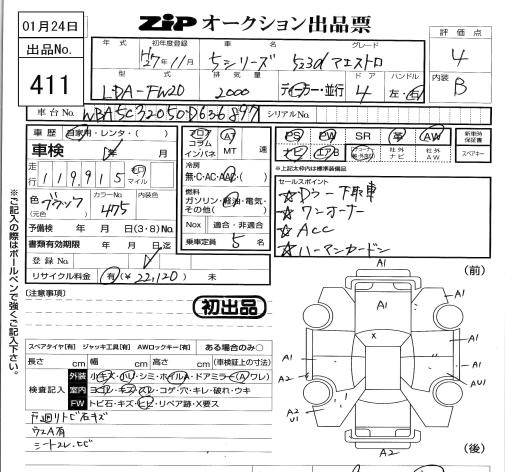 01月24日
ZIP オークション出品票
評価点
4
出品No.
411
年式
初年度登録
H27年11月
車名
5シリーズ
グレード
523d マエストロ
型式
LDA-FW20
排気量
2000
ディーラー・並行
ドア
4
ハンドル
左・右
内装
B
車台No.
WBA5C32050D636897
シリアルNo.
車歴
自家用・レンタ・( )
車検
年 月
走行
119,915
マイル
色
(元色)
ブラック
カラーNo.
475
内装色
予備検 年 月 日(3・8)No.
書類有効期限 年 月 日迄
登録No.
リサイクル料金
有(¥22,120) 未
フロア
コラム
インパネ
A
MT
速
冷房
無・C・AC・AAC( )
燃料
ガソリン・軽油・電気・
その他( )
Nox
適合・非適合
乗車定員 5 名
PS
PW
SR
革
AW
ナビ
エアB
社外
ナビ
社外
AW
新車時
保証書
スペアキー
*上記太枠内は標準装備品
セールスポイント
☆Dラー下取車
☆ワンオーナー
☆Acc
☆ハーマンカードン
※ご記入の際はボールペンで強くご記入下さい。
[注意事項]
初出品
スペアタイヤ[有] ジャッキ工具[有] AWロックキー[有] ある場合のみ○
長さ cm 幅 cm 高さ cm (車検証上の寸法)
検査記入
外装
小キズ・小ヘコ・シミ・ホイルA・ドアミラー(A ワレ)
室内
ヨゴレ・キズ・スレ・コゲ・穴・キレ・破れ・ウキ
FW
トビ石・キズ・ヒビ・リペア跡・X要ス
ウスA有
シートスレ、ヒビ
(前)
A1
A1
A1
A1
A1
A2
A
U1
A2
U1
X
A2
(後)